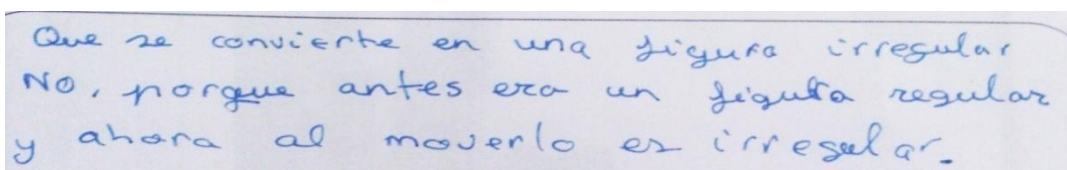 Que se convierte en una figura irregular
No, porque antes era un figura regular
y ahora al moverlo es irregular.